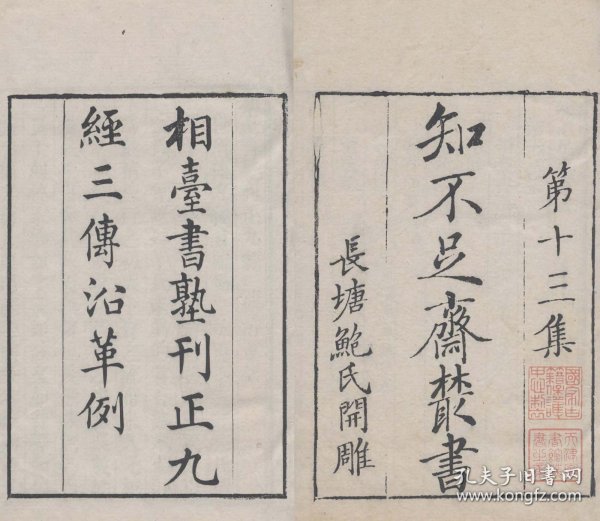 第十三集
知不足齋叢書
長塘鮑氏開雕
相臺書塾刊正九
經三傳沿革例
孔夫子旧书网
www.kongfz.com